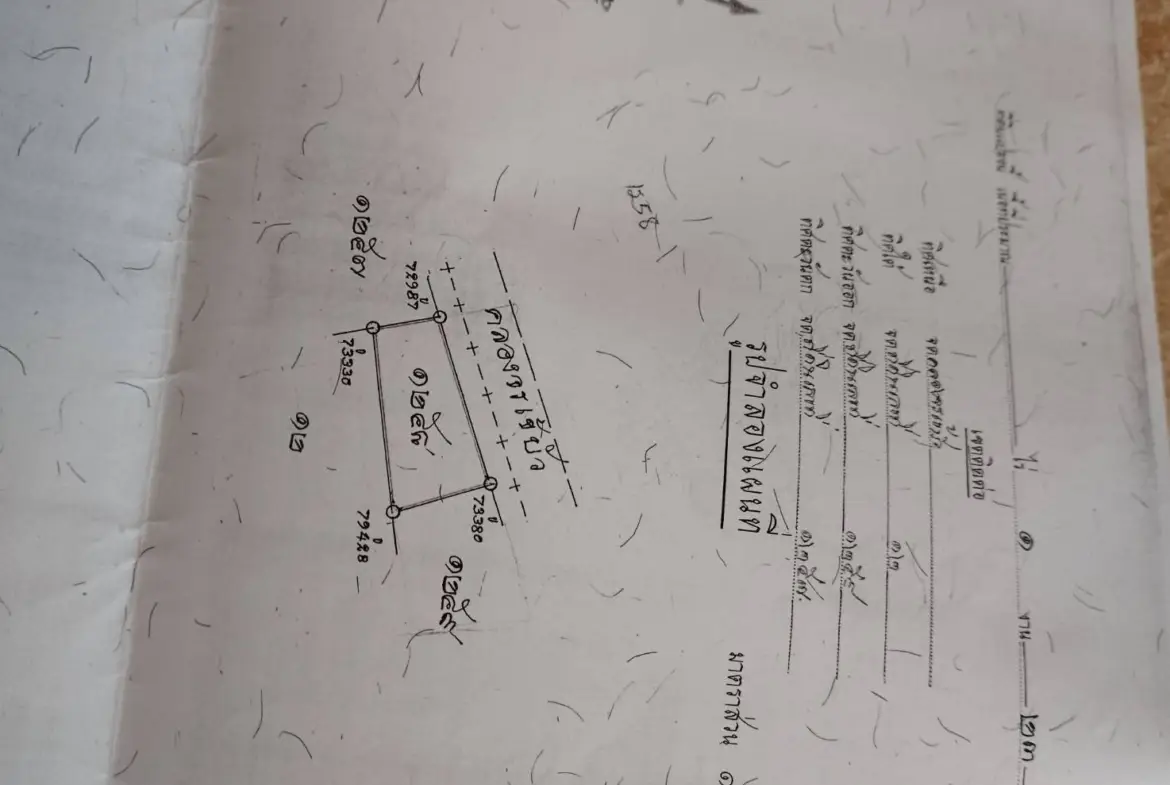 ไร่ ๑ งาน ๒๓
เขตติดต่อ
ทิศเหนือ จดคลองจรเข้บัว
ทิศใต้ จดที่ดินเลขที่ ๑๒
ทิศตะวันออก จดที่ดินเลขที่ ๑๒๕๙
ทิศตะวันตก จดที่ดินเลขที่ ๑๒๕๗
รูปจำลองแผนที่
มาตราส่วน ๑
1258
คลองจรเข้บัว
72987
73380
๑๒๕๗
๑๒๕๘
๑๒๕๙
73330
79428
๑๒